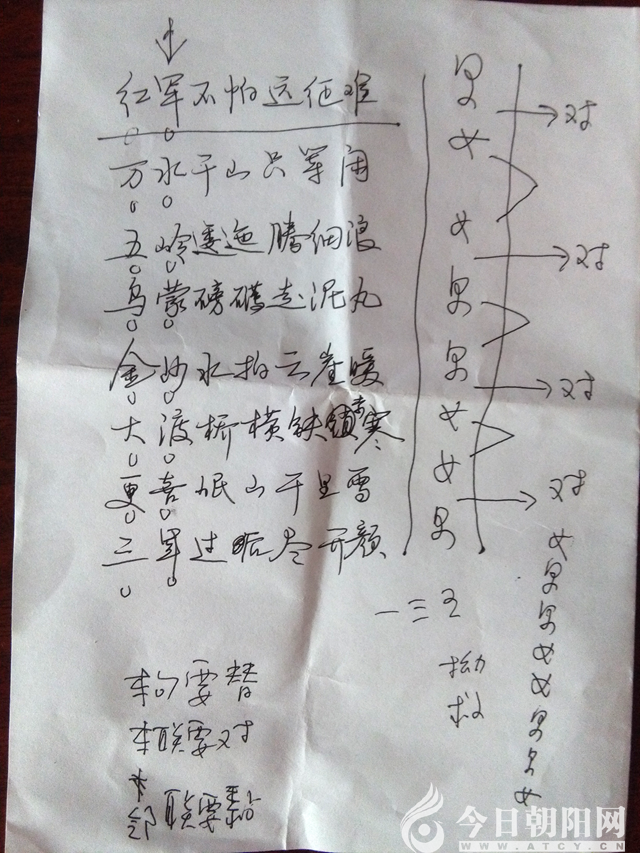 红军不怕远征难
男
对
女
万水千山只等闲
五岭逶迤腾细浪
女
对
男
乌蒙磅礴走泥丸
金沙水拍云崖暖
男
对
女
大渡桥横铁索寒
更喜岷山千里雪
女
对
男
三军过后尽开颜
一三五
拗救
女
男
男
女
女
男
男
女
本句要替
本联要对
邻联要黏
今日朝阳网
WWW.ATCY.CN